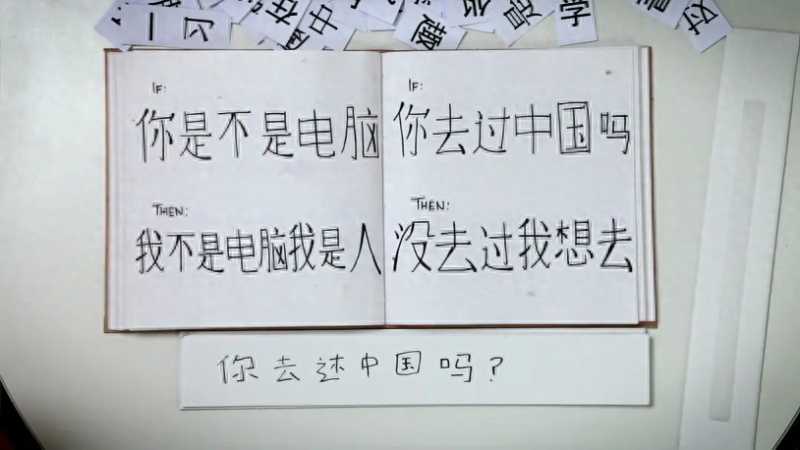 一
习
在
中
趣
对
IF:
你是不是电脑
THEN:
我不是电脑我是人
IF:
你去过中国吗
THEN:
没去过我想去
你去过中国吗?